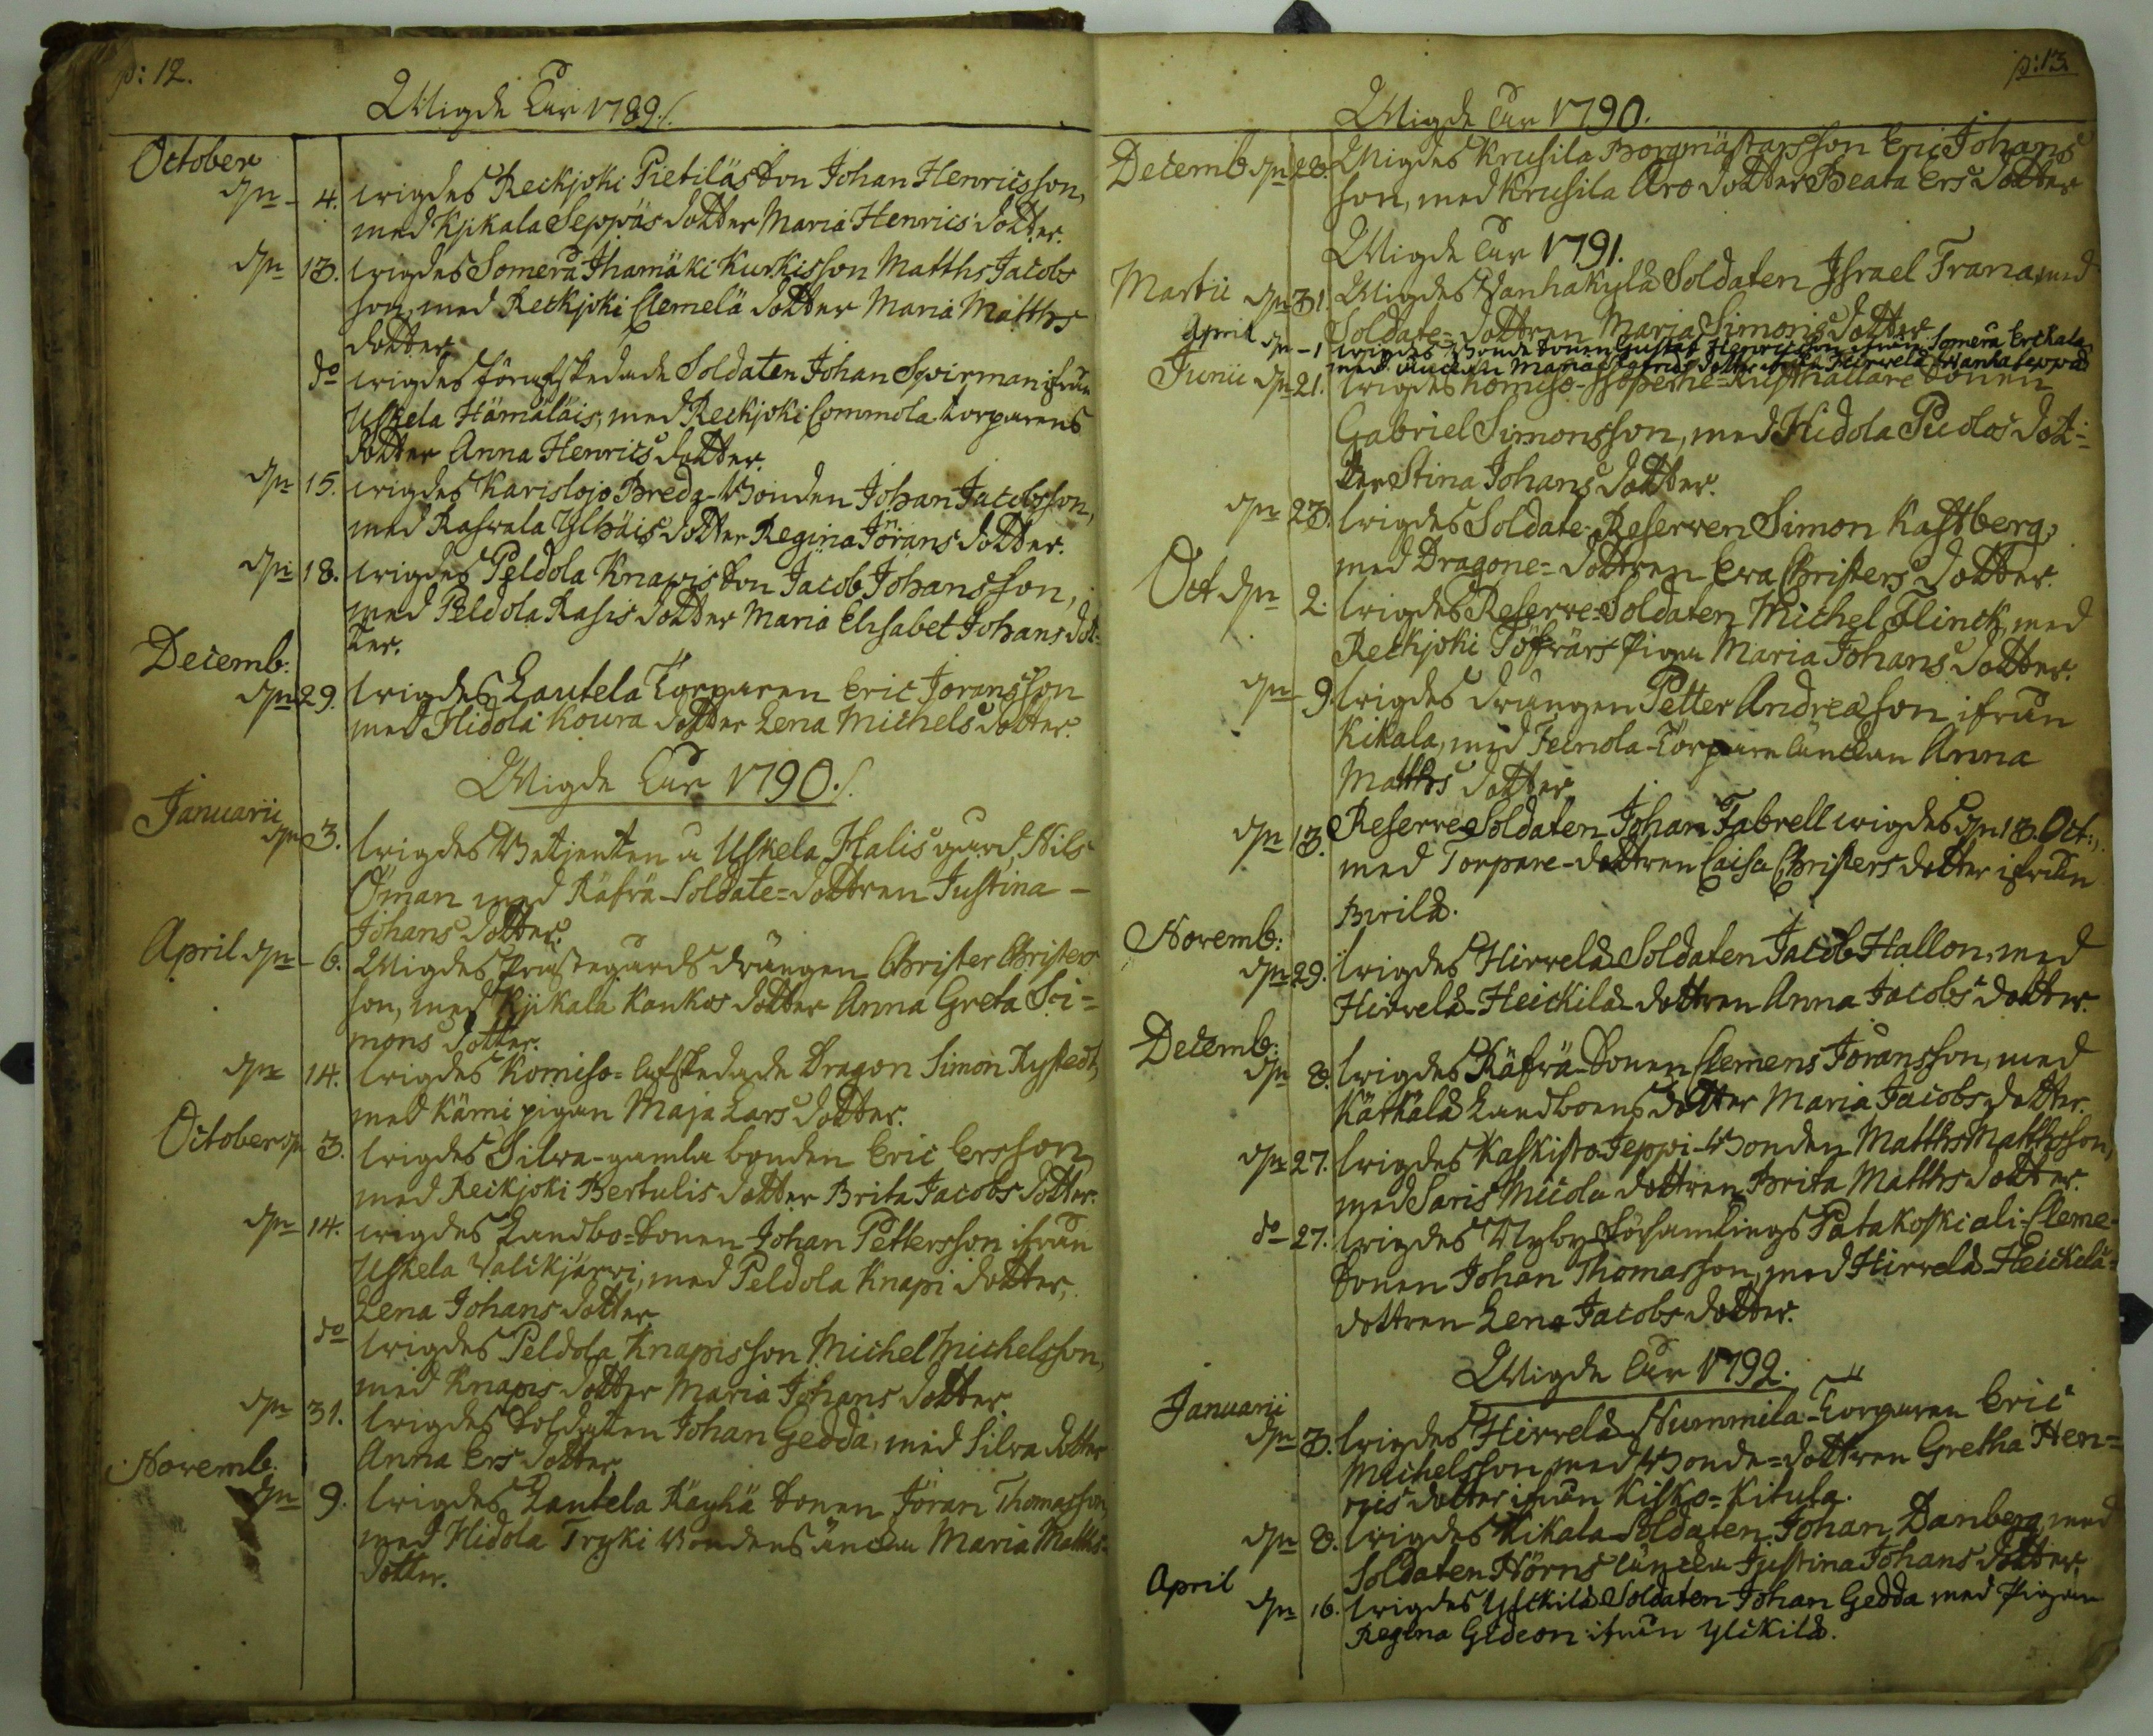 p: 12.
Wigde Åhr 1789./.
October
dn 4. wigdes Reckjoki Pietiläs Son Johan Henricsson,
med Kjikala Seppäs dotter Maria Henrics dotter.
dn 13. wigdes Somerå Jhamäki Kurkis son Matths Jacobs
son, med Reckjoki Clemelä dotter Maria Matths
dotter
do wigdes förafskedade Soldaten Johan Sqvirman ifrån
Uskela Hämäläis, med Reckjoki Commola torparens
dotter Anna Henrics dotter.
dn 15. wigdes Karislojo Breda-Bonden Johan Jacobsson,
med Raswala Ylhäis dotter Regina Jörans dotter.
dn 18. wigdes Peldola Knapis Son Jacob Johansson,
med Peldola Rasis dotter Maria Elisabet Johans dot-
ter.
Decemb:
dn 29. wigdes Lautela Torparen Eric Joransson
med Hidola Koura dotter Lena Michels dotter.
Wigde Åhr 1790./.
Januarii
dn 3. wigdes Betjenten å Uskela Halis gård, Nils
Öman med Räfrä-Soldate-dottren Justina -
Johans dotter.
April dn - 6. Wigdes Prästegårds drängen Christer Christers
son, med Kjikala Kankos dotter Anna Greta Si-
mons dotter.
dn 14. wigdes Komiso-afskedade Dragon Simon Rystedt,
med Kämi pigan Maja Lars dotter.
October dn 3. wigdes Silwa-gamla bonden Eric Ersson
med Reickjoki Bertulis dotter Brita Jacobs dotter.
dn 14. wigdes Landbo-Sonen Johan Pettersson ifrån
Uskela Valikjärwi, med Peldola Knapi dotter,
Lena Johans dotter
do wigdes Peldola Knapis son Michel Michelsson,
med Knapis dotter Maria Johans dotter.
dn 31. wigdes Soldaten Johan Gedda, med Silwa dotter
Anna Ers dotter
Novemb.
dn 9. wigdes Lautela Käyhä Sonen Jöran Thomasson,
med Hidola Tryki Bondens änka Maria Matths-
dotter.
p: 13.
Wigde Åhr 1790.
Decemb dn 28. Wigdes Krusila Borgmästars son Eric Johans
son, med Krusila Aro dotter Beata Ers dotter
Wigde Åhr 1791.
Martii dn 31. Wigdes Vanhakylä Soldaten Jsrael Trana med
Soldate-dottren Maria Simons dotter
April dn - 1 wigdes Bonde Sonen Gustaf Henricsson ifrån Somerå Erckala
med änckan Maria dotter ifrån Hirvelä Wanhaseppä
Junii dn 21. wigdes Komiso- Rusthållare Sonen
Gabriel Simonsson, med Hidola Pudos dot-
ter Stina Johans dotter.
dn 23. wigdes Soldate-Reserven Simon Kastberg,
med Dragone-dottren Eva Christers dotter.
Oct dn 2. wigdes Reserve-Soldaten Michel Flinck, med
Reckjoki Pigan Maria Johans dotter.
dn - 9. wigdes drängen Petter Andreasson ifrån
Kikala, med Feinola-Torpare änckan Anna
Matths dotter
dn 13. Reserve Soldaten Johan Fabrell wigdes dn 13. Oct:,
med Torpare-dottren Caisa Christers dotter ifrån
Burilä.
Novemb:
dn 29. wigdes Hirvelä Soldaten Jacob Hallon, med
Hirvelä-Heickilä-dottren Anna Jacobs dotter.
Decemb:
dn 8. wigdes Räfrä-Sonen Clemens Joransson, med
Kärkälä Landboens dotter Maria Jacobs dotter.
dn 27. wigdes Kaskisto-Jeppi-Bonden Matths Matthsson,
med Saris Micola dottren Brita Matths dotter.
do 27. wigdes Nyby Församlings Patakoski ali-Cleme-
Sonen Johan Thomasson, med Hirvelä-Heickilä-
dottren Lena Jacobs dotter.
Wigde Åhr 1792.
Januarii
dn 3. wigdes Hirvelä Nummila-Torparen Eric
Michelsson med Bonde-dottren Gretha Hen-
rics dotter ifrån Kisko-Kitula.
dn 8. wigdes Kikala-Soldaten Johan Danberg med
Soldaten Hörns änka Justina Johans dotter.
April
dn 16. wigdes Ylikilä Soldaten Johan Gedda med Pigan
Regina Gideon ifrån Ylikilä.